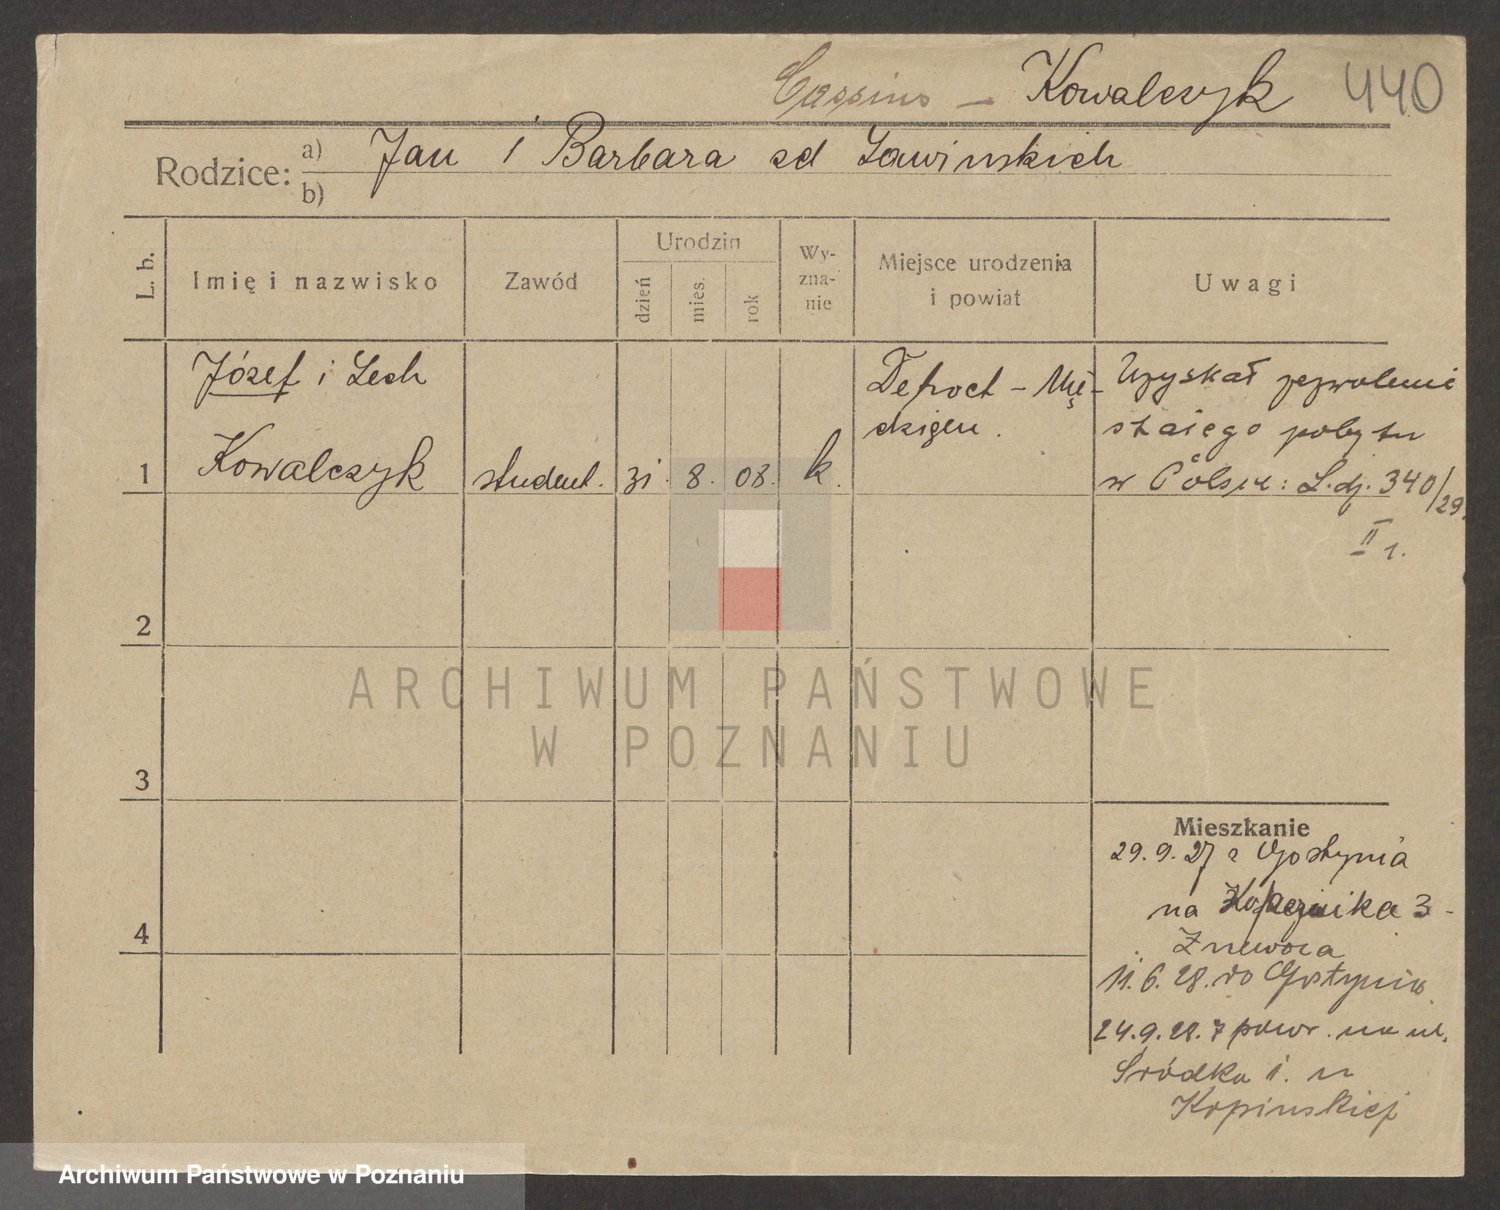 Cassino – Kowalczyk 440
Rodzice: a) Jan i Barbara zd Ławińskich
b)
L. b.
Imię i nazwisko
Zawód
Urodzin
dzień
mies.
rok
Wy-
zna-
nie
Miejsce urodzenia
i powiat
Uwagi
1
Józef i Lech
Kowalczyk
student.
31. 8. 08.
k.
Detroct – Mi-
chigen.
Uzyskał zezwolenie
stałego pobytu
w Polsce: L.dz. 340/29.
II r.
2
3
4
Mieszkanie
29.9.27 z Gostynia
na Kopernika 3 -
11.6.28. do Gostynia
24.9.28. z powr. na ul.
Śródka 1. u
Kopinskiej
ARCHIWUM PAŃSTWOWE
W POZNANIU
Archiwum Państwowe w Poznaniu